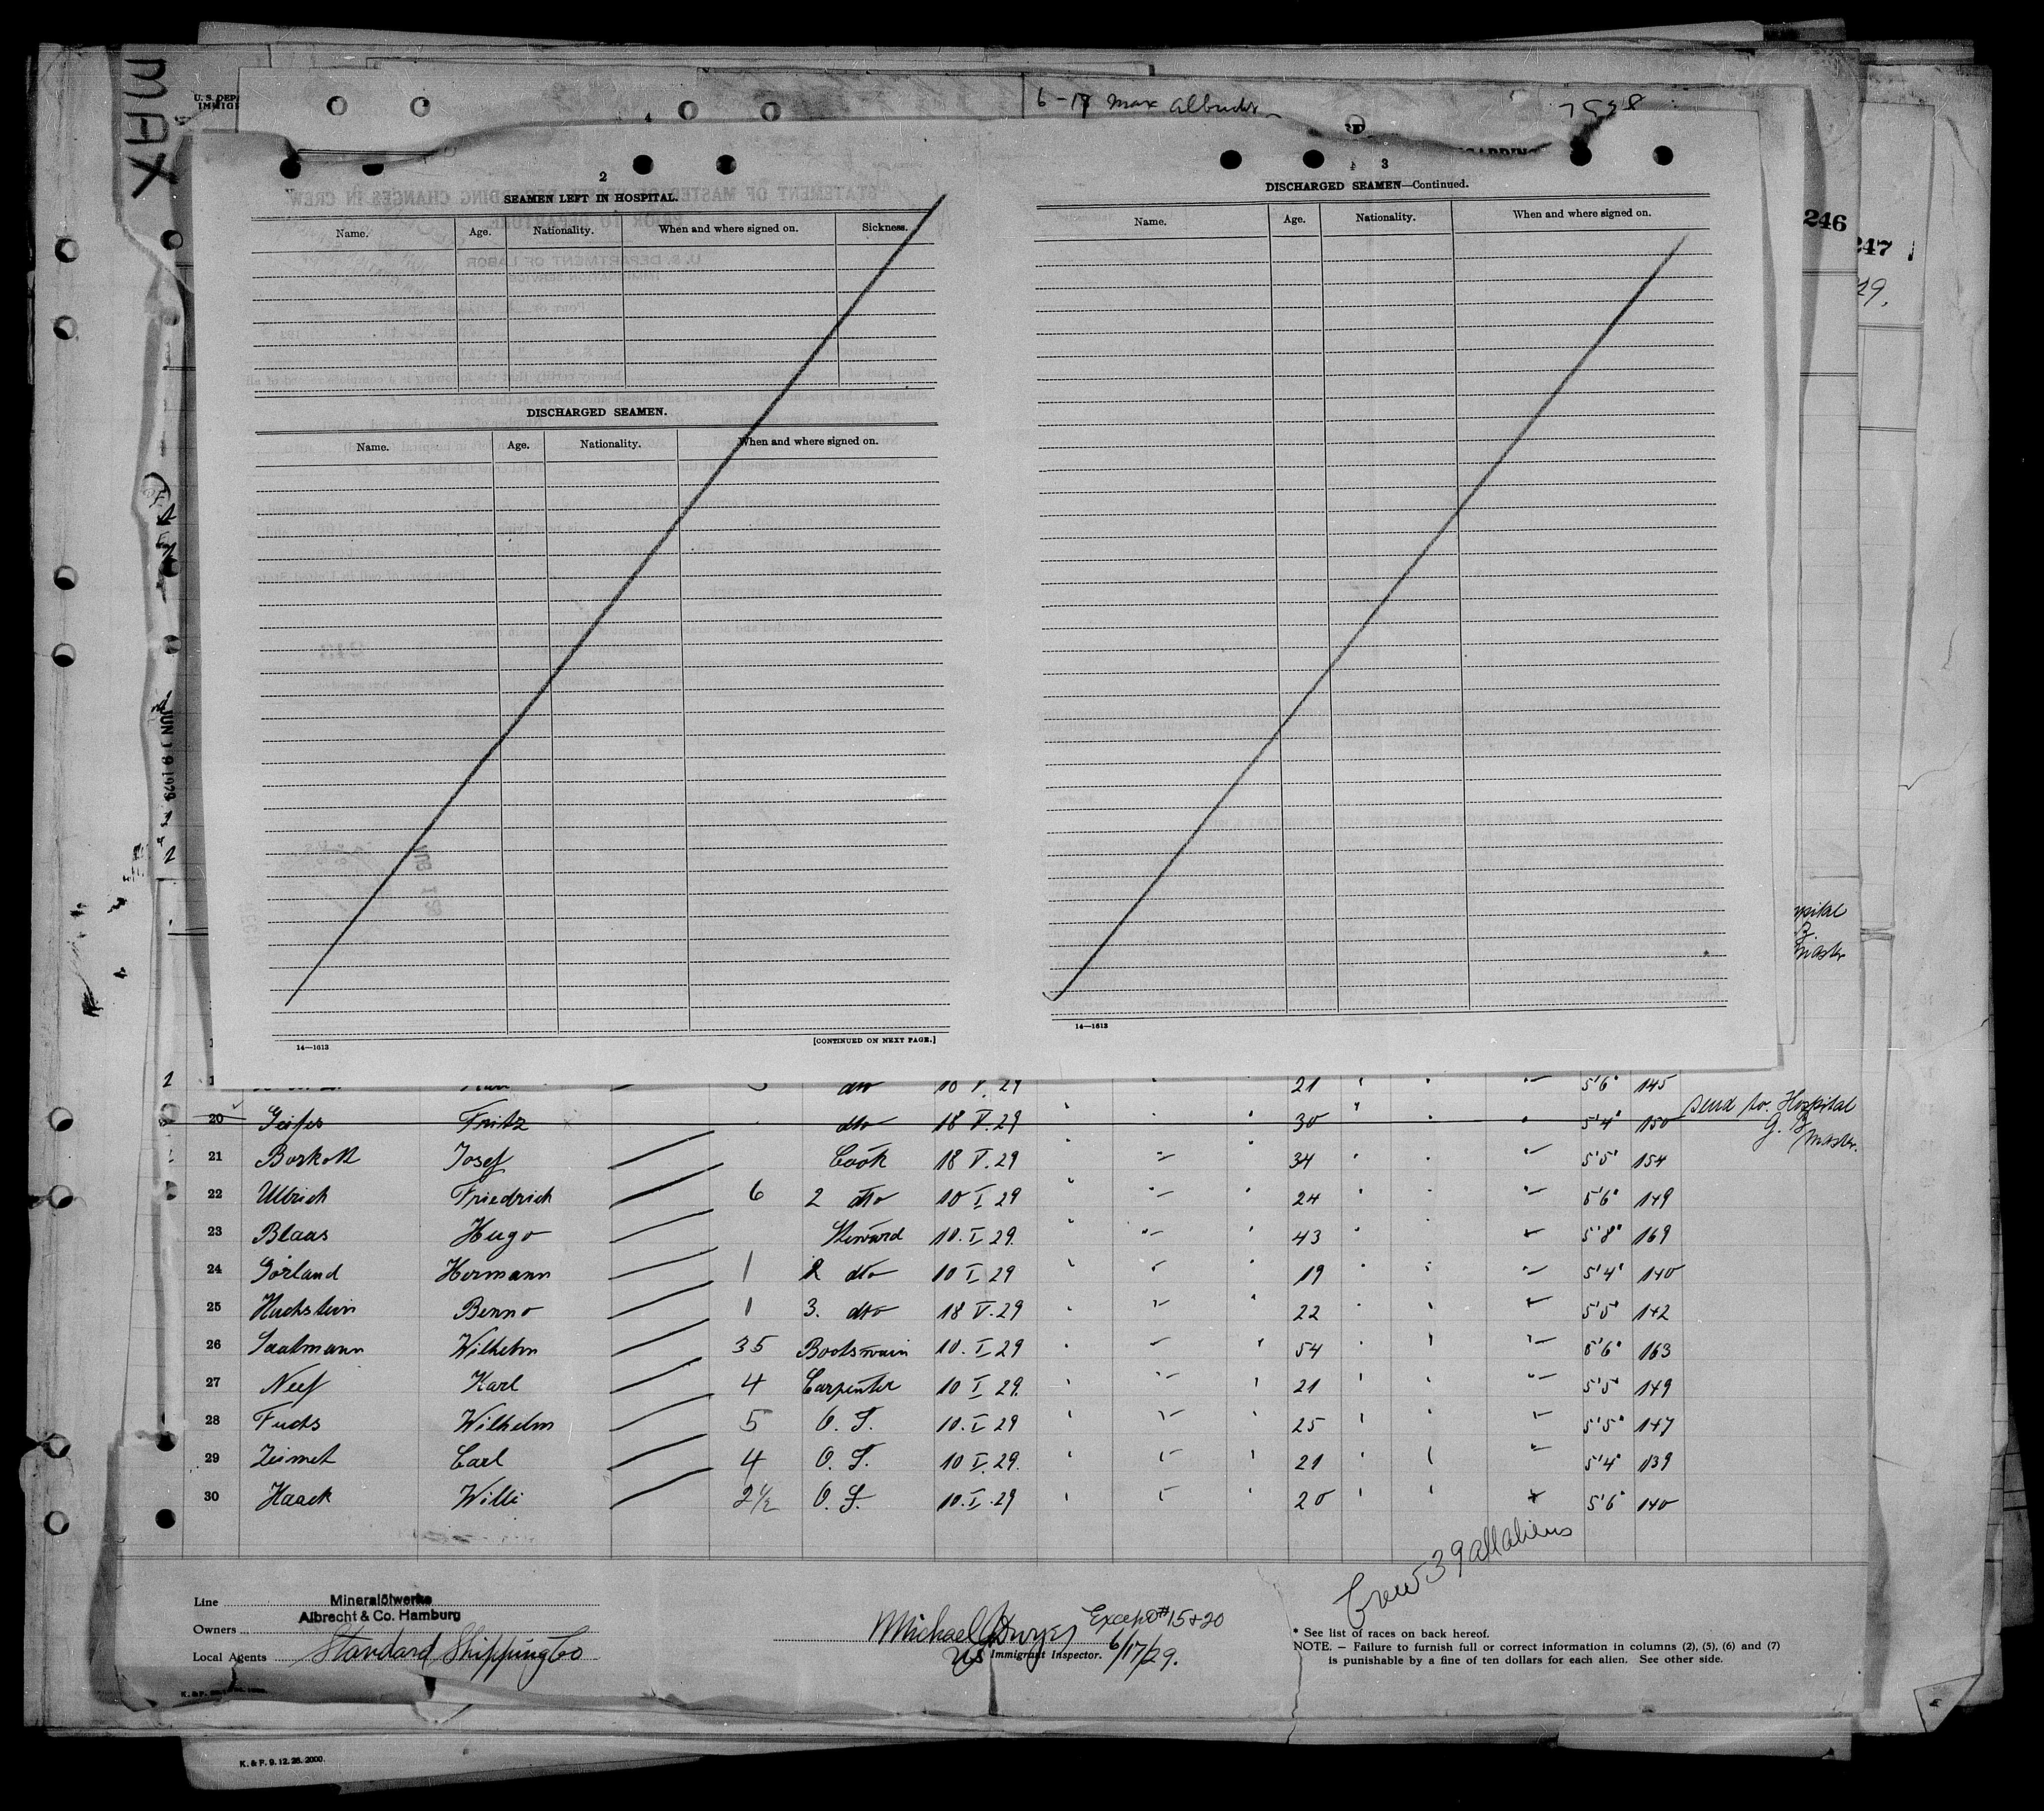 MAX
U. S. DEPA
IMMIG
6-17 Max Albrecht
246
247
29.
2
SEAMEN LEFT IN HOSPITAL.
Name. Age. Nationality. When and where signed on. Sickness.
DISCHARGED SEAMEN.
Name. Age. Nationality. When and where signed on.
14—1613 [CONTINUED ON NEXT PAGE.]
3
DISCHARGED SEAMEN—Continued.
Name. Age. Nationality. When and where signed on.
14—1613
JUN 19 1929
dto 21 5'6" 145
20 Fritz dto 18 V. 29 30 5'4" 150 Send to Hospital
G. B.
Master.
21 Borkott Josef Cook 18 V. 29 " 34 " 5'5" 154
22 Ullrich Friedrich 6 2 dto 10 I 29 " 24 " 5'6" 149
23 Blaas Hugo Steward 10. I 29. " 43 " 5'8" 169
24 Görland Hermann 1 2 dto 10 I 29 " 19 " 5'4" 140
25 Huchstein Benno 1 3. dto 18 V. 29 " 22 " 5'5" 142
26 Saalmann Wilhelm 35 Bootswain 10. I 29 " 54 " 5'6" 163
27 Neef Karl 4 Carpenter 10 I 29. " 21 " 5'5" 149
28 Fuchs Wilhelm 5 O. S. 10. I 29 " 25 " 5'5" 147
29 Zeimet Carl 4 O. S. 10 I. 29. " 21 " 5'4" 139
30 Haack Willi 2 1/2 O. S. 10. I. 29 " 20 " 5'6" 140
Crew 39 all aliens
Line
Mineralölwerke
Albrecht & Co. Hamburg
Owners
Local Agents Standard Shipping Co
Michael Dwyer Except # 15 + 20
US Immigrant Inspector. 6/17/29.
* See list of races on back hereof.
NOTE. — Failure to furnish full or correct information in columns (2), (5), (6) and (7)
is punishable by a fine of ten dollars for each alien. See other side.
K. & F. 9. 12. 28. 2000.